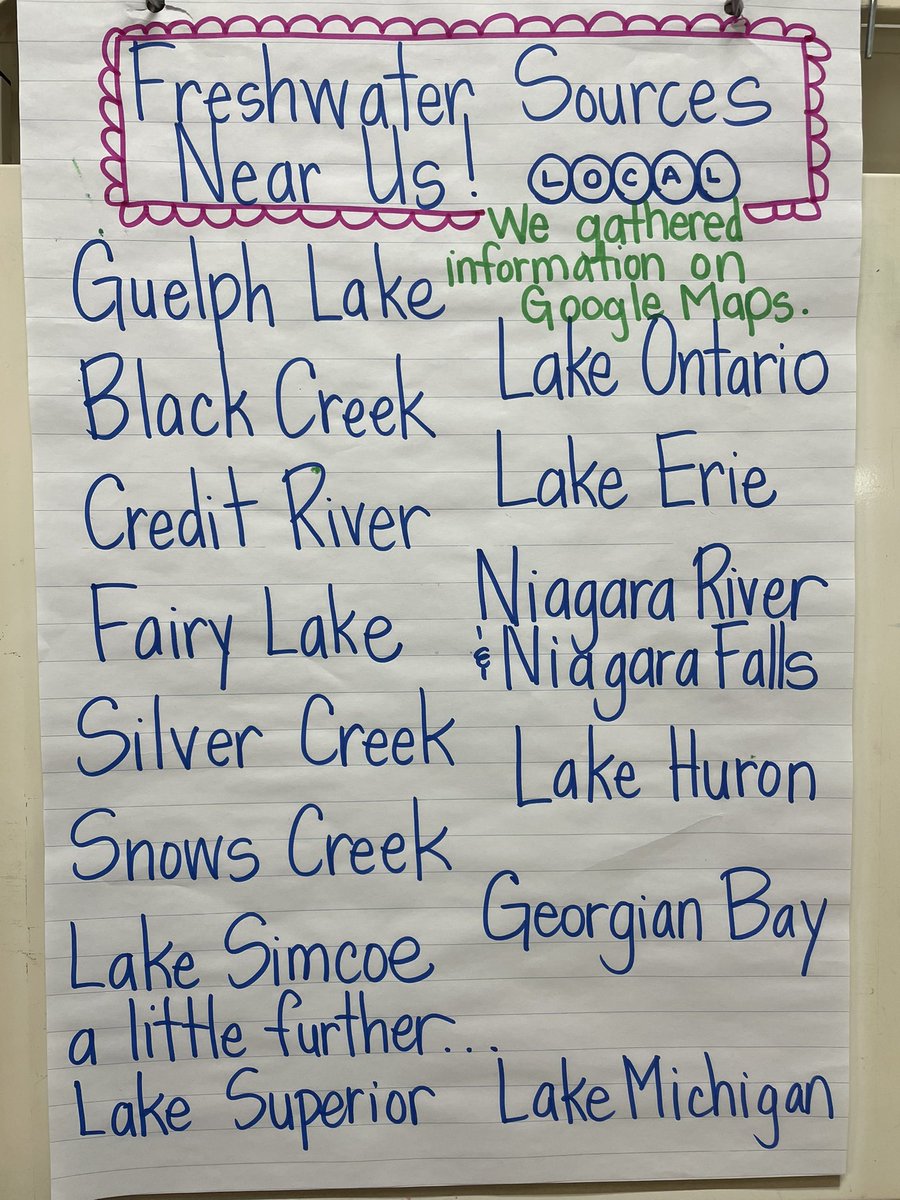 Freshwater Sources
Near Us! LOCAL
We gathered
information on
Google Maps.
Guelph Lake
Black Creek
Credit River
Fairy Lake
Silver Creek
Snows Creek
Lake Simcoe
Lake Ontario
Lake Erie
Niagara River
& Niagara Falls
Lake Huron
Georgian Bay
a little further...
Lake Superior
Lake Michigan